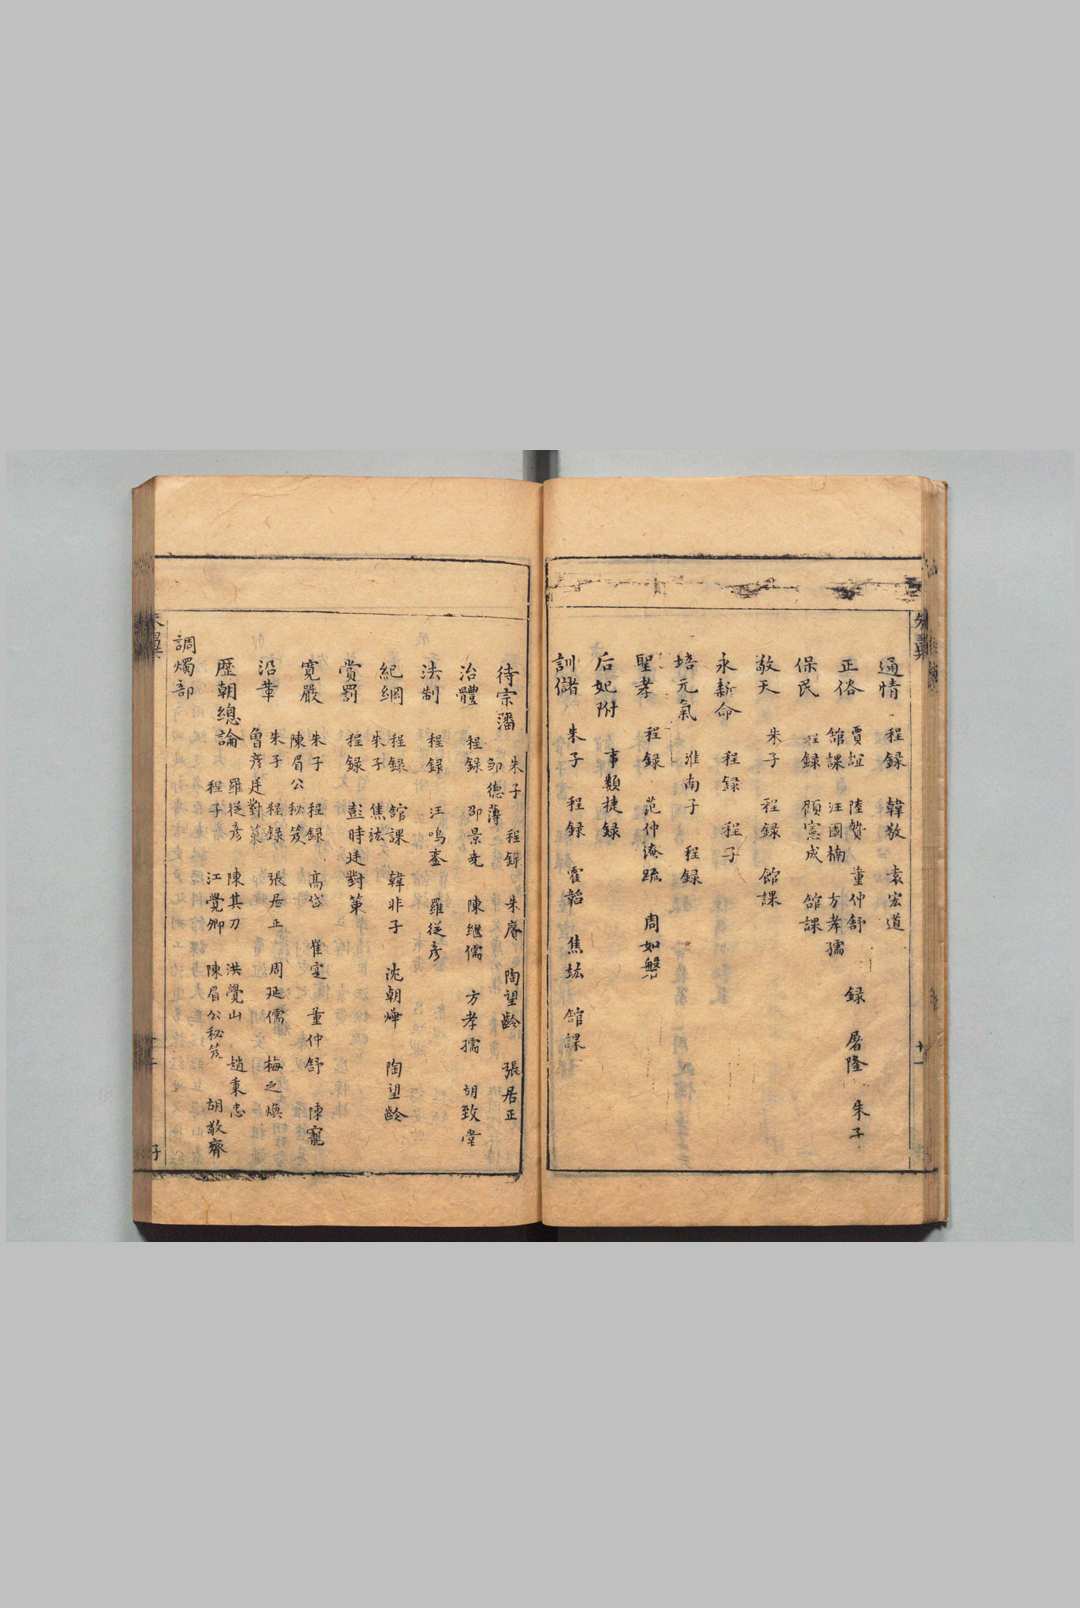 通情 程録 韓敬 袁宏道
正俗 賈誼 陸贄 董仲舒 録 屠隆 朱子
館課 汪國楠 方孝孺
保民 程録 顧憲成 館課
敬天 朱子 程録 館課
永新命 程録 程子
培元氣 淮南子 程録
聖孝 程録 范仲淹疏 周如磐
后妃附 事類捷録
訓儲 朱子 程録 霍韜 焦竑 館課
待宗藩 朱子 程録 朱賡 陶望齡 張居正
邹德薄
治體 程録 邵景尭 陳継儒 方孝孺 胡致堂
法制 程録 汪鳴鸾 羅従彦
紀綱 程録 館課 韓非子 沈朝燁 陶望齡
朱子 焦竑
賞罰 程録 彭時廷對策
寛嚴 朱子 程録 高岱 崔寔 董仲舒 陳寵
陳眉公秘笈
沿革 朱子 程録 張居正 周延儒 梅之熉
魯彦廷對策
歴朝總論 羅従彦 陳其力 洪覺山 趙秉忠
程子 江覺卿 陳眉公秘笈 胡敬齋
調燭部